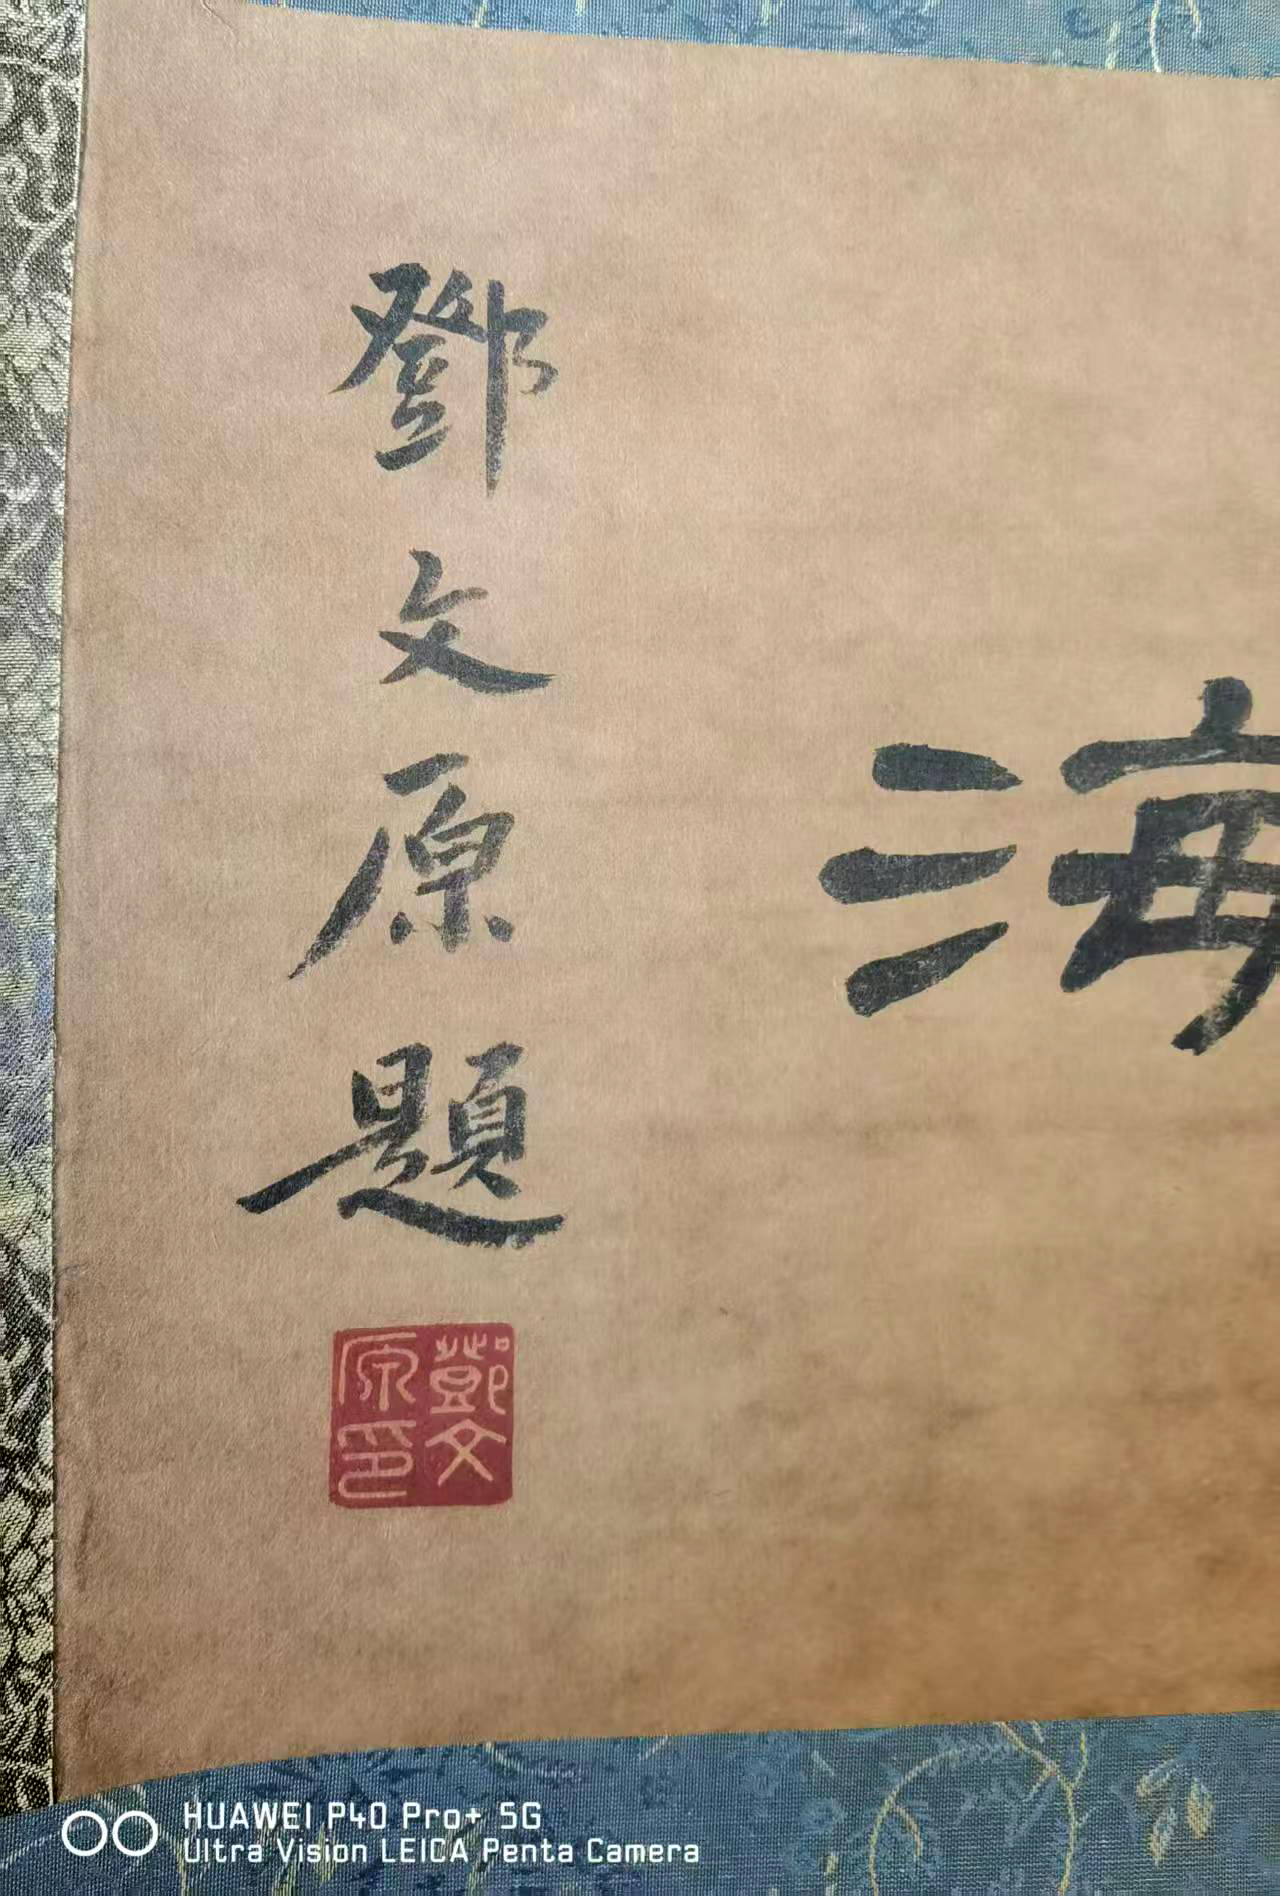 海
鄧文原題
鄧文
原印
HUAWEI P40 Pro+ 5G
Ultra Vision LEICA Penta Camera